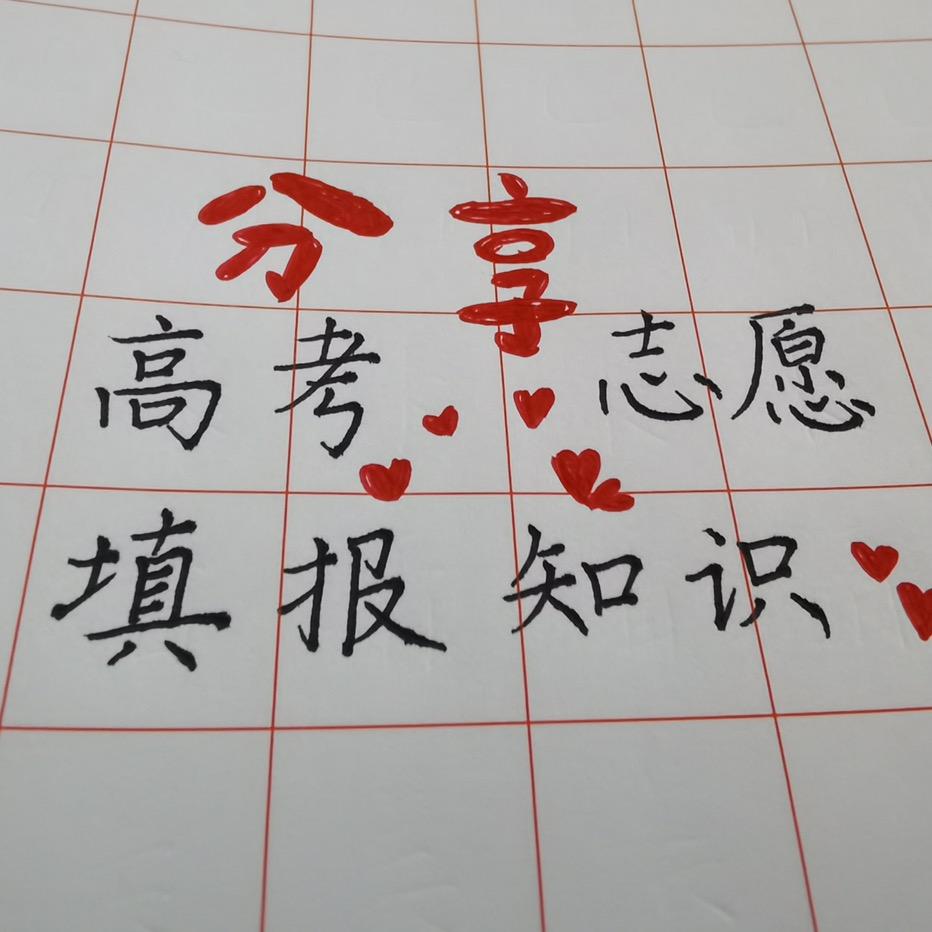 分享
高考 志愿
填报知识